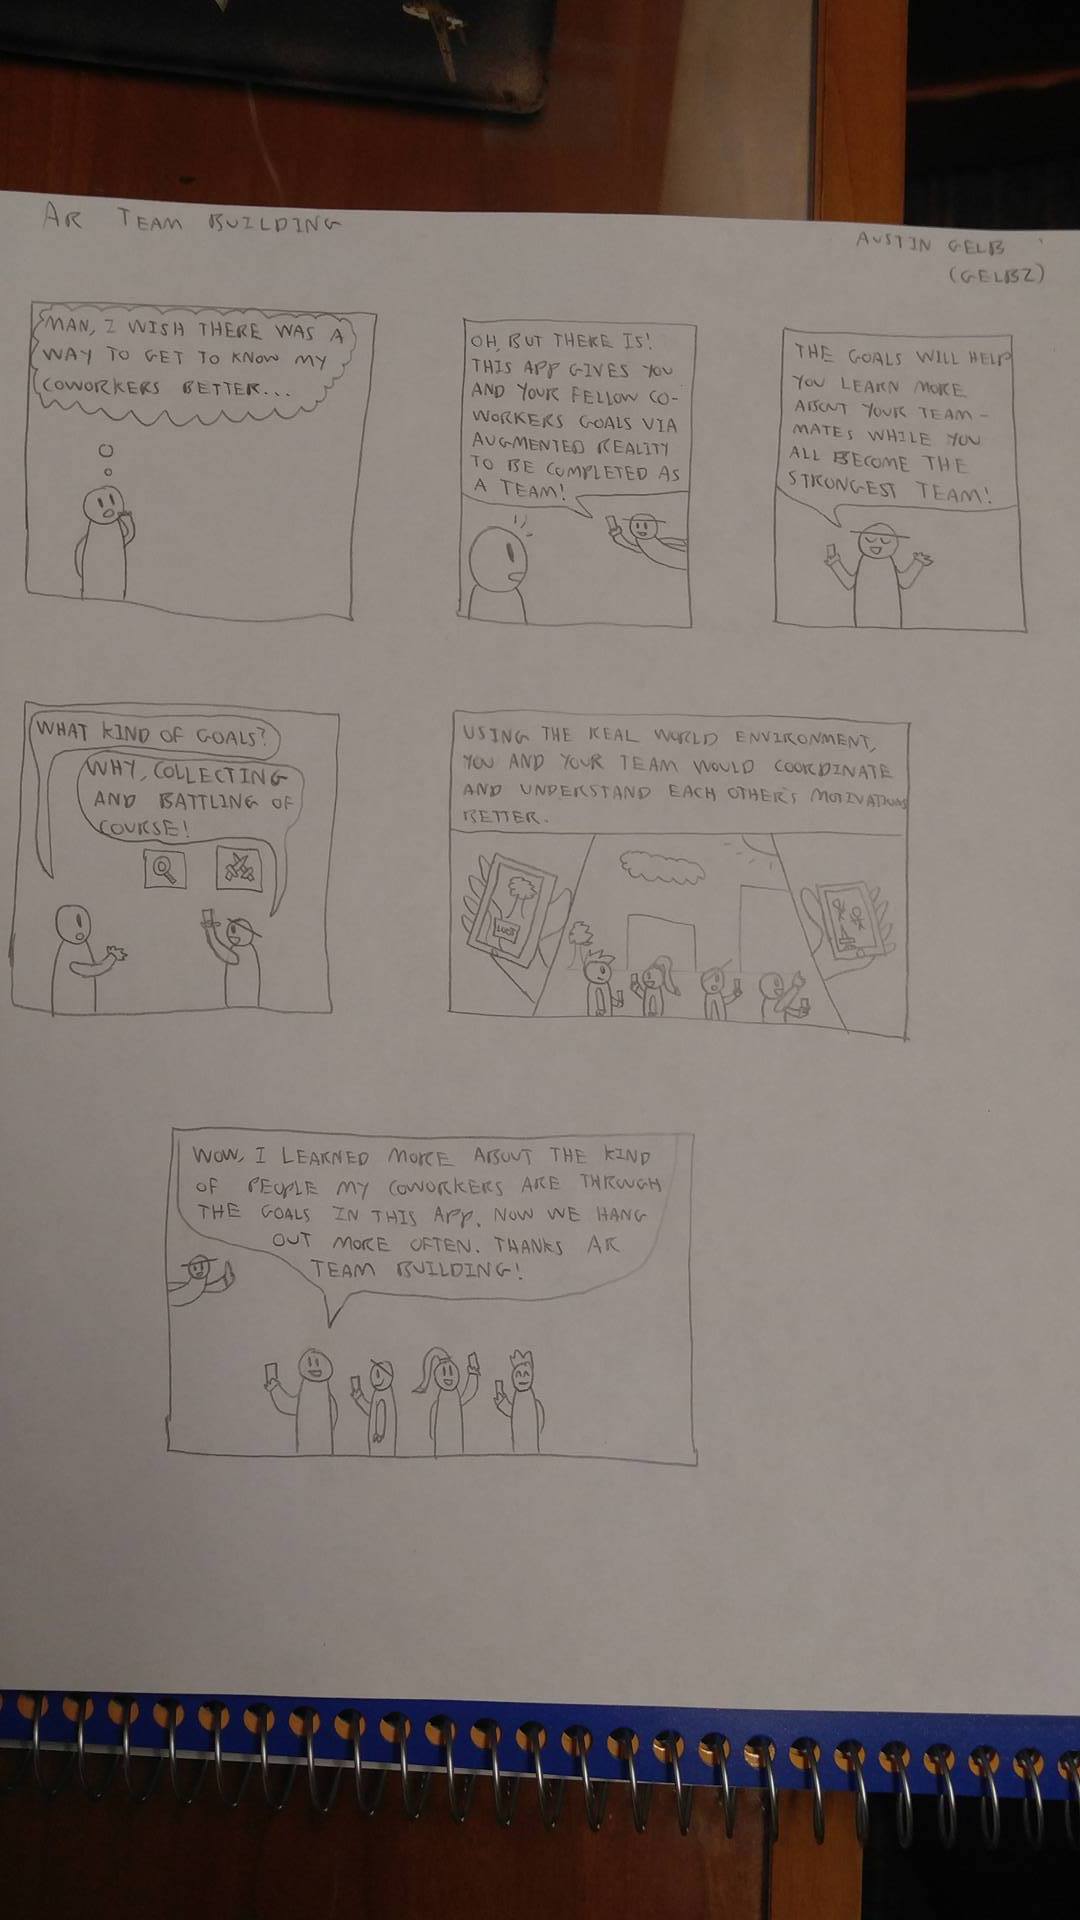 AR TEAM BUILDING
AUSTIN GELB
(GELB2)
MAN, I WISH THERE WAS A
WAY TO GET TO KNOW MY
COWORKERS BETTER...
OH, BUT THERE IS!
THIS APP GIVES YOU
AND YOUR FELLOW CO-
WORKERS GOALS VIA
AUGMENTED REALITY
TO BE COMPLETED AS
A TEAM!
THE GOALS WILL HELP
YOU LEARN MORE
ABOUT YOUR TEAM-
MATES WHILE YOU
ALL BECOME THE
STRONGEST TEAM!
WHAT KIND OF GOALS?
WHY, COLLECTING
AND BATTLING OF
COURSE!
USING THE REAL WORLD ENVIRONMENT,
YOU AND YOUR TEAM WOULD COORDINATE
AND UNDERSTAND EACH OTHER'S MOTIVATIONS
BETTER.
WOW, I LEARNED MORE ABOUT THE KIND
OF PEOPLE MY COWORKERS ARE THROUGH
THE GOALS IN THIS APP. NOW WE HANG
OUT MORE OFTEN. THANKS AR
TEAM BUILDING!